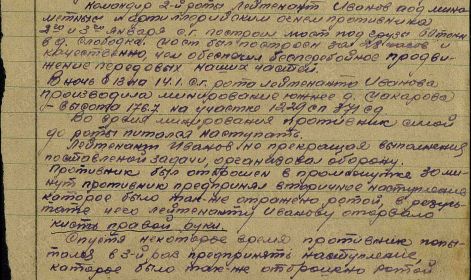 Командир 2-й роты Лейтенант Иванов под мино-
метным и артиллерийским огнем противника
2го и 3го января с.г. построил мост под грузы
в д. Слободка, мост был построен за часов и
качественно, чем обеспечил бесперебойное продви-
жение передовых наших частей.
В ночь с 13 на 14.1. с.г. рота лейтенанта Иванова
производила минирование южнее д. Сахарова
- высота 176.7 на участке 1229 сп 371 сд
Во время минирования противник силой
до роты питался наступать.
Лейтенант Иванов не прекращая выполнения
поставленой задачи, организовал оборону.
Противник был отброшен в промежутке 30 ми-
нут противник предпринял вторичное наступление
которое было так-же отражено ротой, в резуль-
тате чего лейтенанту Иванову оторвало
кисть правой руки.
Спустя некоторое время противник попы-
тался в 3-й раз предпринять наступление,
которое было так-же отброшено ротой